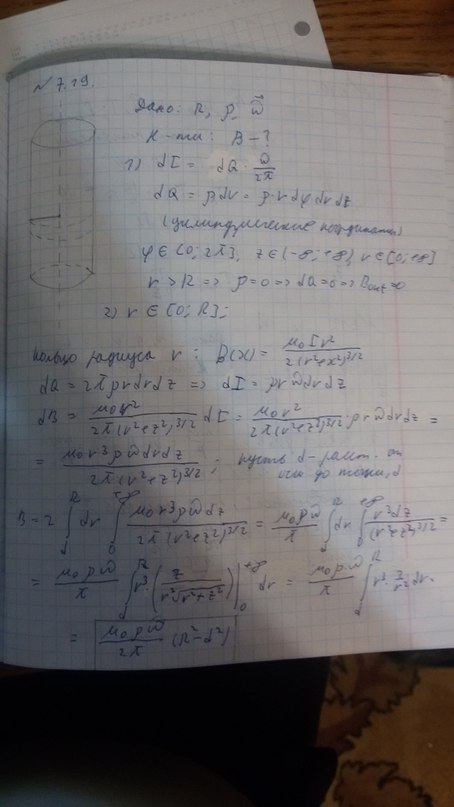 № 7.19.
Дано: R, ρ, ω⃗
Н-ти: B - ?
1) dI = dQ · ω/2π
dQ = ρdV = ρ · r dφ dr dz
(цилиндрические координаты)
φ ∈ [0; 2π], z ∈ (-∞; +∞), r ∈ [0; +∞]
r > R => ρ = 0 => dQ = 0 => Bout = 0
2) r ∈ [0; R];
кольцо радиуса r : B(x) = μ₀Ir²/2(r²+x²)^3/2
dQ = 2πρrdrdz => dI = ρrω⃗drdz
dB = μ₀r²/2π(r²+z²)^3/2 dI = μ₀r²/2π(r²+z²)^3/2 · ρrω⃗drdz =
= μ₀r³ρω⃗drdz/2π(r²+z²)^3/2 ; пусть d - расст. от
оси до точки, d
B = 2 ∫_d^R dr ∫_0^+∞ μ₀r³ρω⃗dz/2π(r²+z²)^3/2 = μ₀ρω⃗/π ∫_d^R dr ∫_0^+∞ r³dz/(r²+z²)^3/2 =
= μ₀ρω⃗/π ∫_d^R r³ · (z/r²√(r²+z²)) |_0^+∞ dr = μ₀ρω⃗/π ∫_d^R r³ · 1/r² dr =
= μ₀ρω⃗/2π (R² - d²)